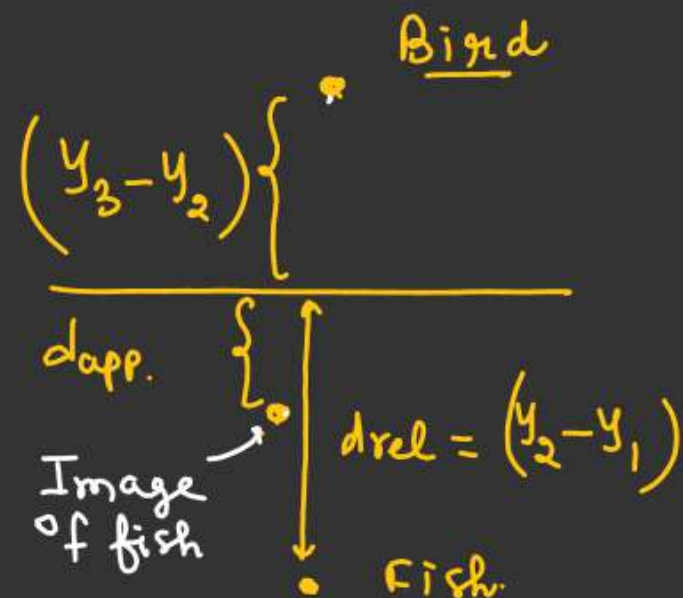 Bird
(y₃-y₂)
dapp.
drel = (y₂-y₁)
Image
of fish
Fish.